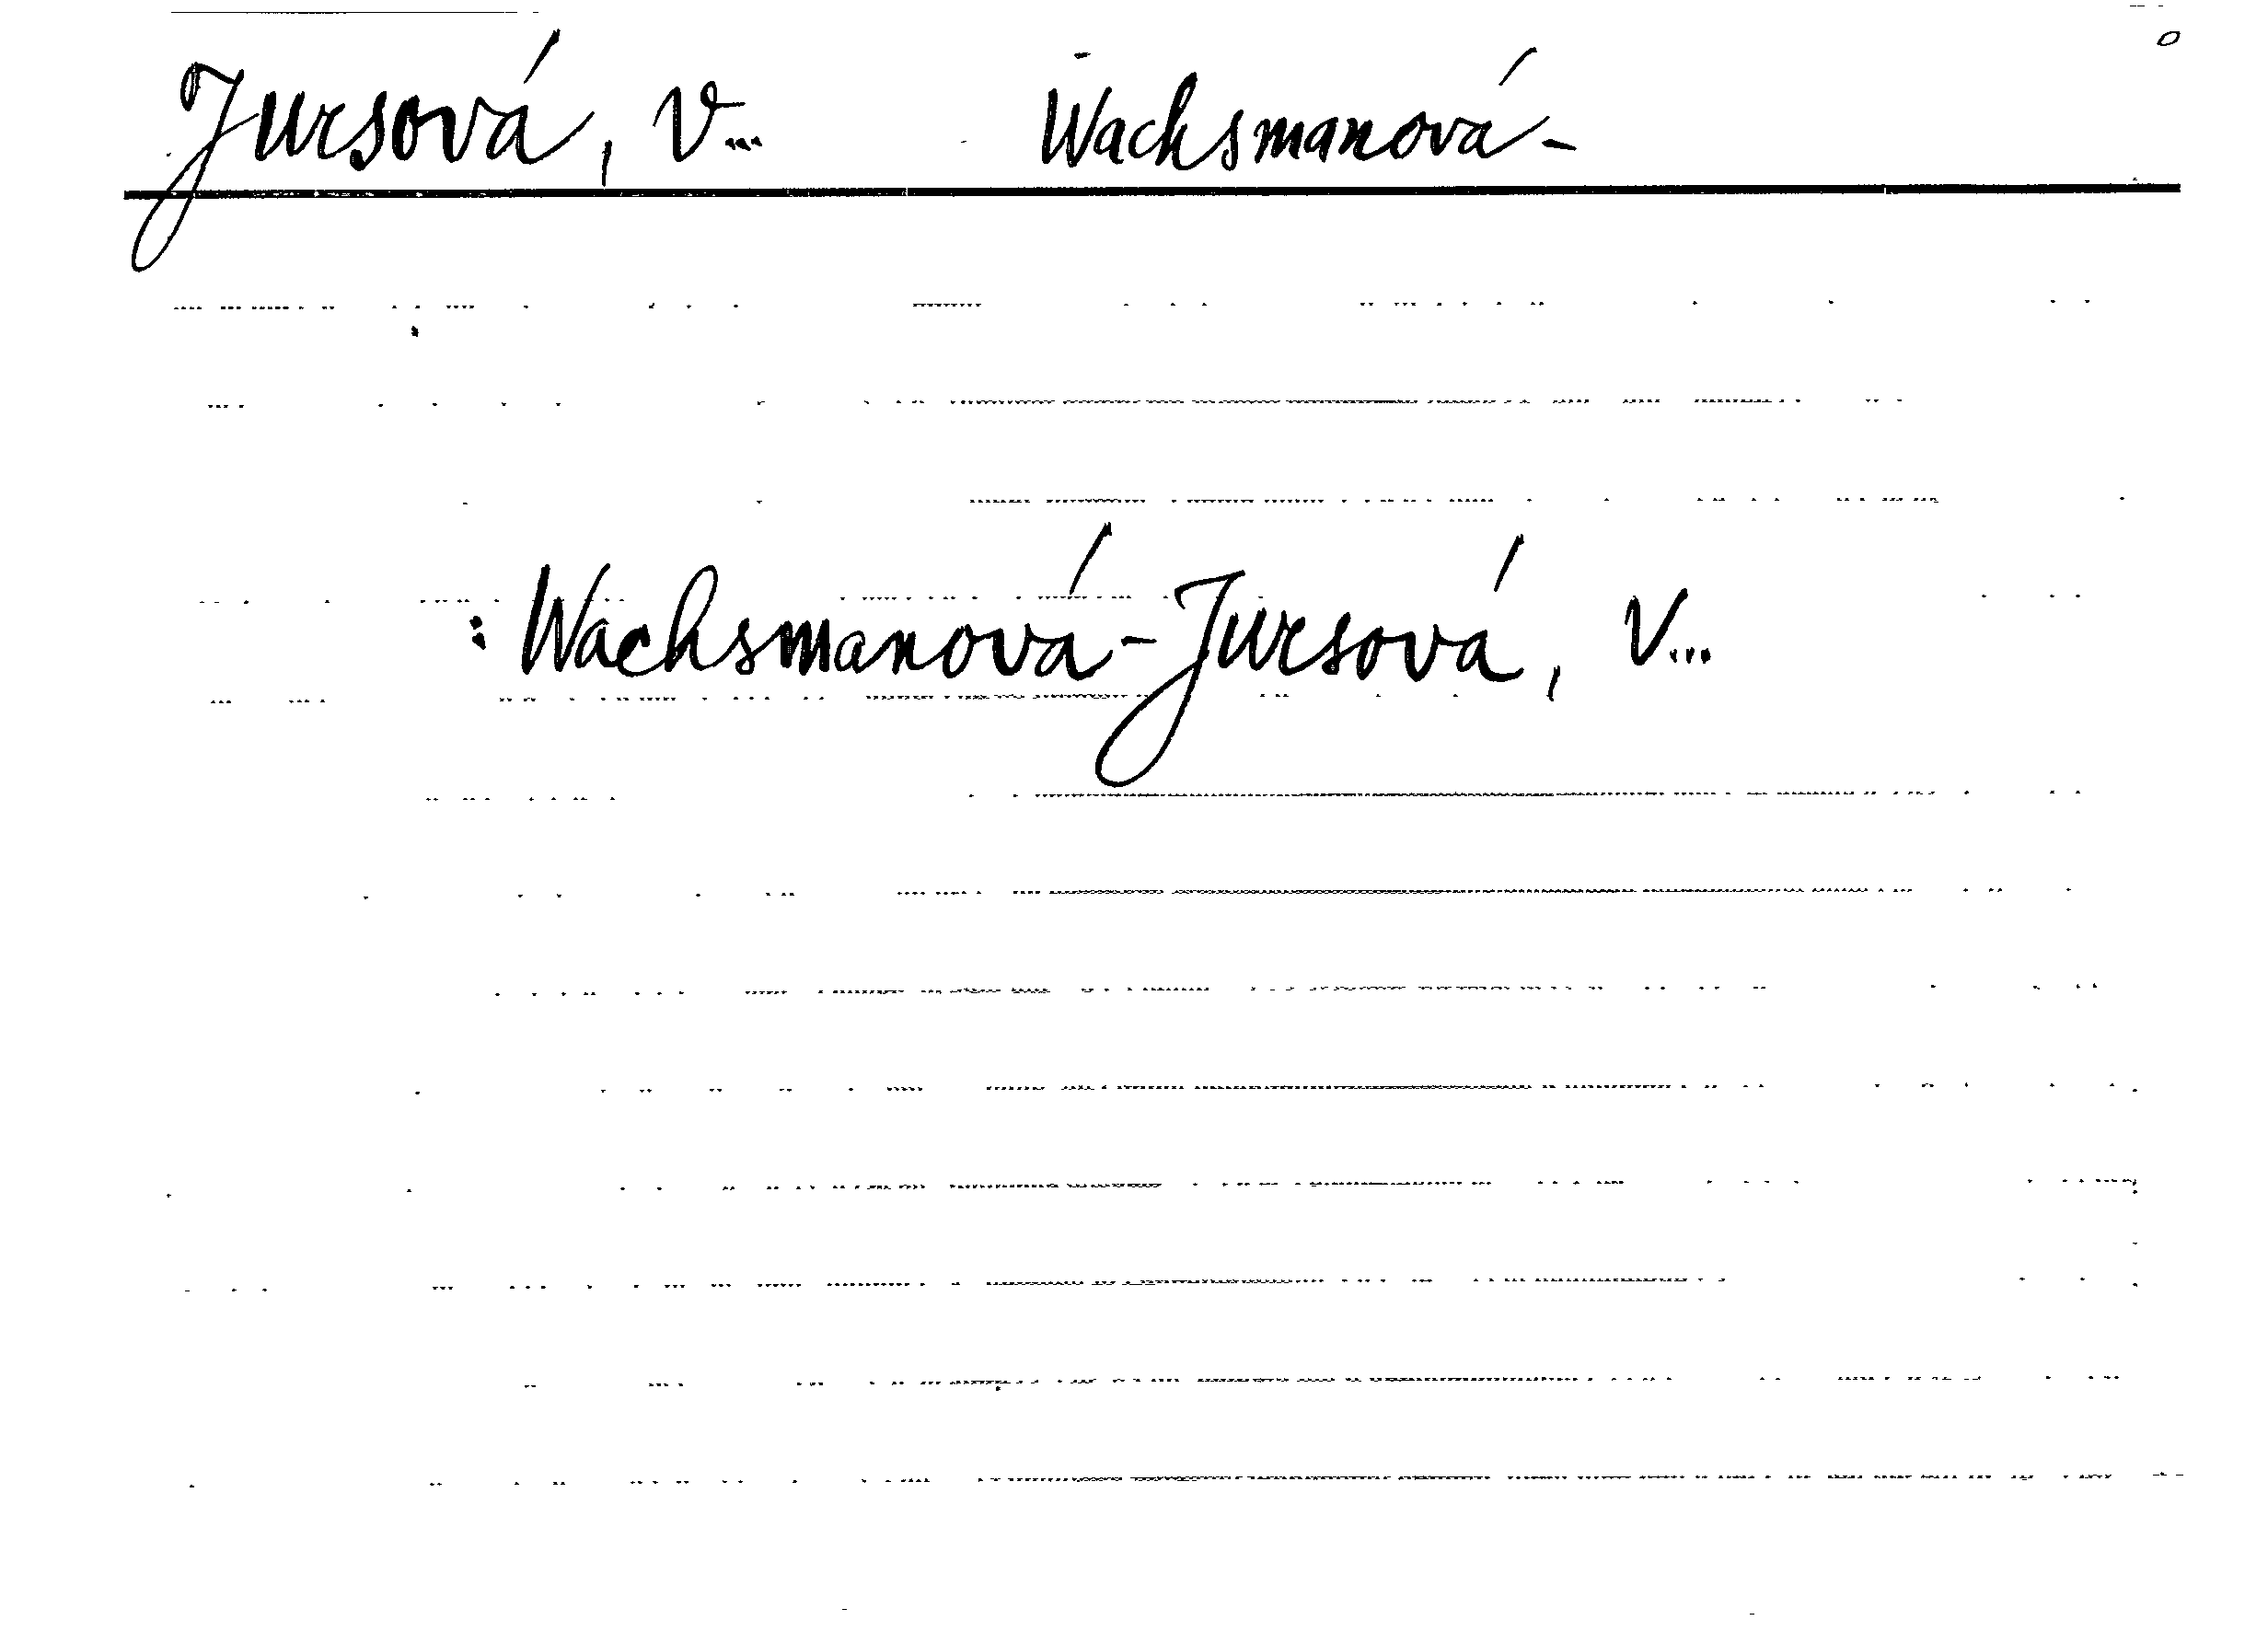 Jursová, V... Wachsmanová-
: Wachsmanová-Jursová, V...